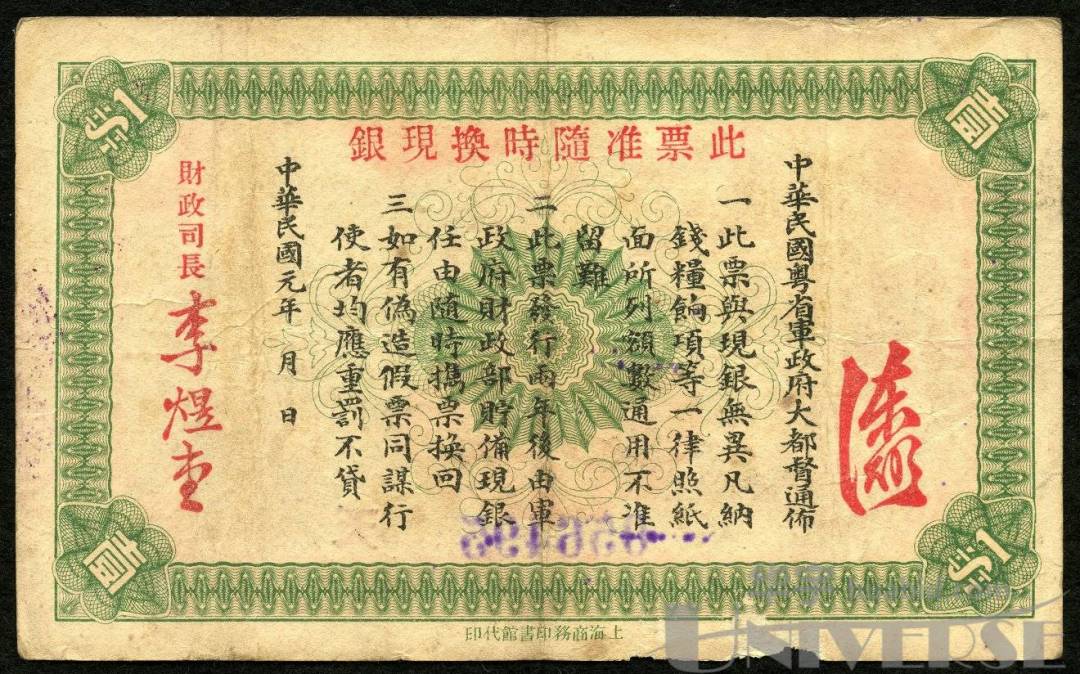 此票准隨時換現銀
中華民國粵省軍政府大都督通佈
一此票與現銀無異凡納
錢糧餉項等一律照紙
面所列額數通用不准
留難
二此票發行兩年後由軍
政府財政部貯備現銀
任由隨時攜票換回
三如有偽造假票同謀行
使者均應重罰不貸
中華民國元年 月 日
財政司長 李煜堂
$1
壹
壹
$1
上海商務印書館代印
UNIVERSE